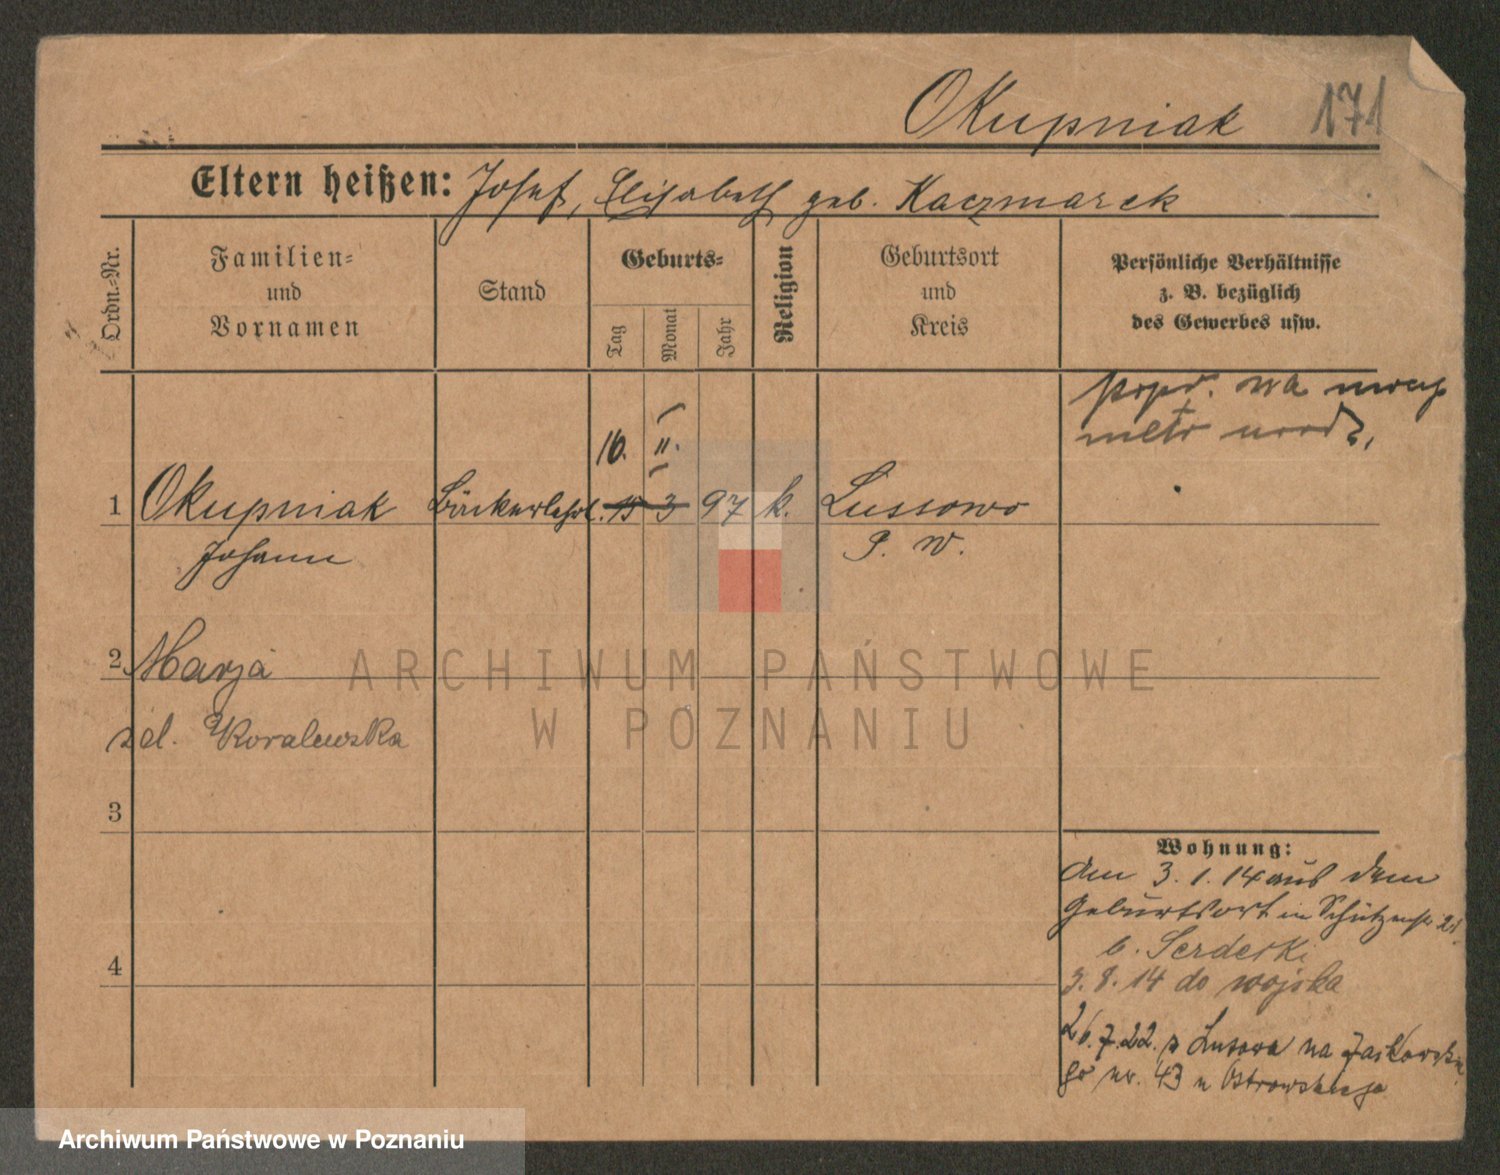 Okupniak 171
Eltern heißen: Josef, Elisabeth geb. Kaczmarek
Ordn.-Nr.
Familien-
und
Vornamen
Stand
Geburts-
Tag
Monat
Jahr
Religion
Geburtsort
und
Kreis
Persönliche Verhältnisse
z. B. bezüglich
des Gewerbes usw.
popr. na
metr urodz.
16. II.
1 Okupniak Bäckerlehrl. 15 3 97 k. Lussowo
Johann P. W.
2 Marja
zd. Koralewska
3
4
Wohnung:
Am 3.1.14 aus dem
Geburtsort in Schützenstr 21
b. Serdecki
3.8.14 do wojska
26.7.22. z Lusowa na Jackowskie
go nr. 43 u Ostrowskiego
ARCHIWUM PAŃSTWOWE
W POZNANIU
Archiwum Państwowe w Poznaniu